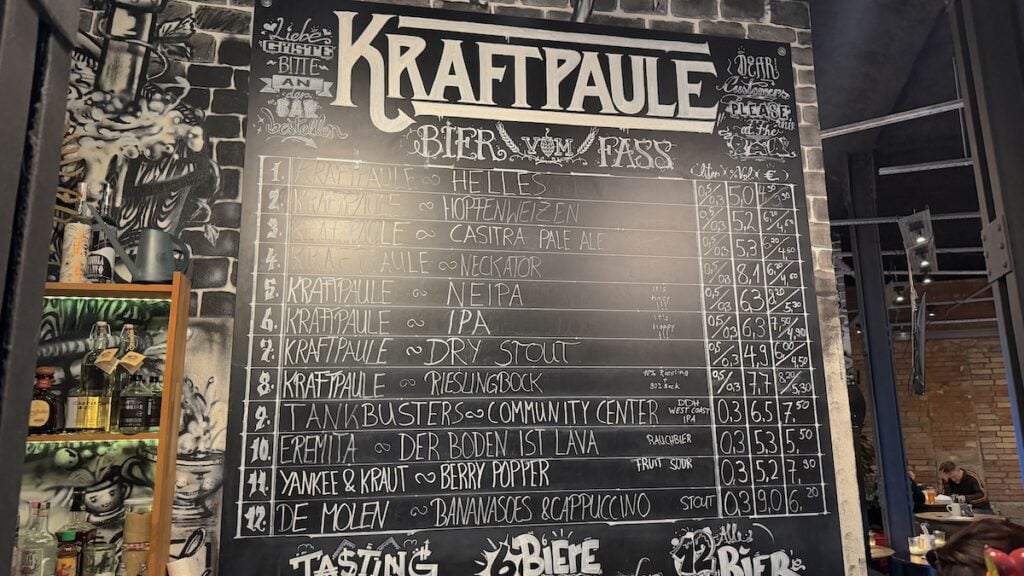 Liebe
Gäste
BITTE
AN
BAR
bestellen
KRAFTPAULE
DEAR
Customers
PLEASE
at the
BIER VOM FASS
1. KRAFTPAULE ~ HELLES 5.0
2. KRAFTPAULE ~ HOPFENWEIZEN 5.2
3. KRAFTPAULE ~ CASITRA PALE ALE 5.3
4. KRAFTPAULE ~ NECKATOR 8.1
5. KRAFTPAULE ~ NEIPA 6.3
6. KRAFTPAULE ~ IPA 6.3
7. KRAFTPAULE ~ DRY STOUT 4.9
8. KRAFTPAULE ~ RIESLINGBOCK 7.7
9. TANKBUSTERS ~ COMMUNITY CENTER DDH WEST COAST IPA 0.3 6.5 7.50
10. EREMITA ~ DER BODEN IST LAVA RAUCHBIER 0.3 5.3 5.50
11. YANKEE & KRAUT ~ BERRY POPPER FRUIT SOUR 0.3 5.2 7.90
12. DE MOLEN ~ BANANASOES & CAPPUCCINO STOUT 0.3 9.0 6.20
TASTING
BIERE
Alle
12 BIER